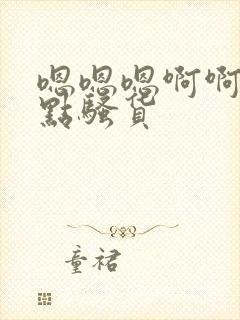 嗯嗯嗯啊啊
點騷貨
童裙